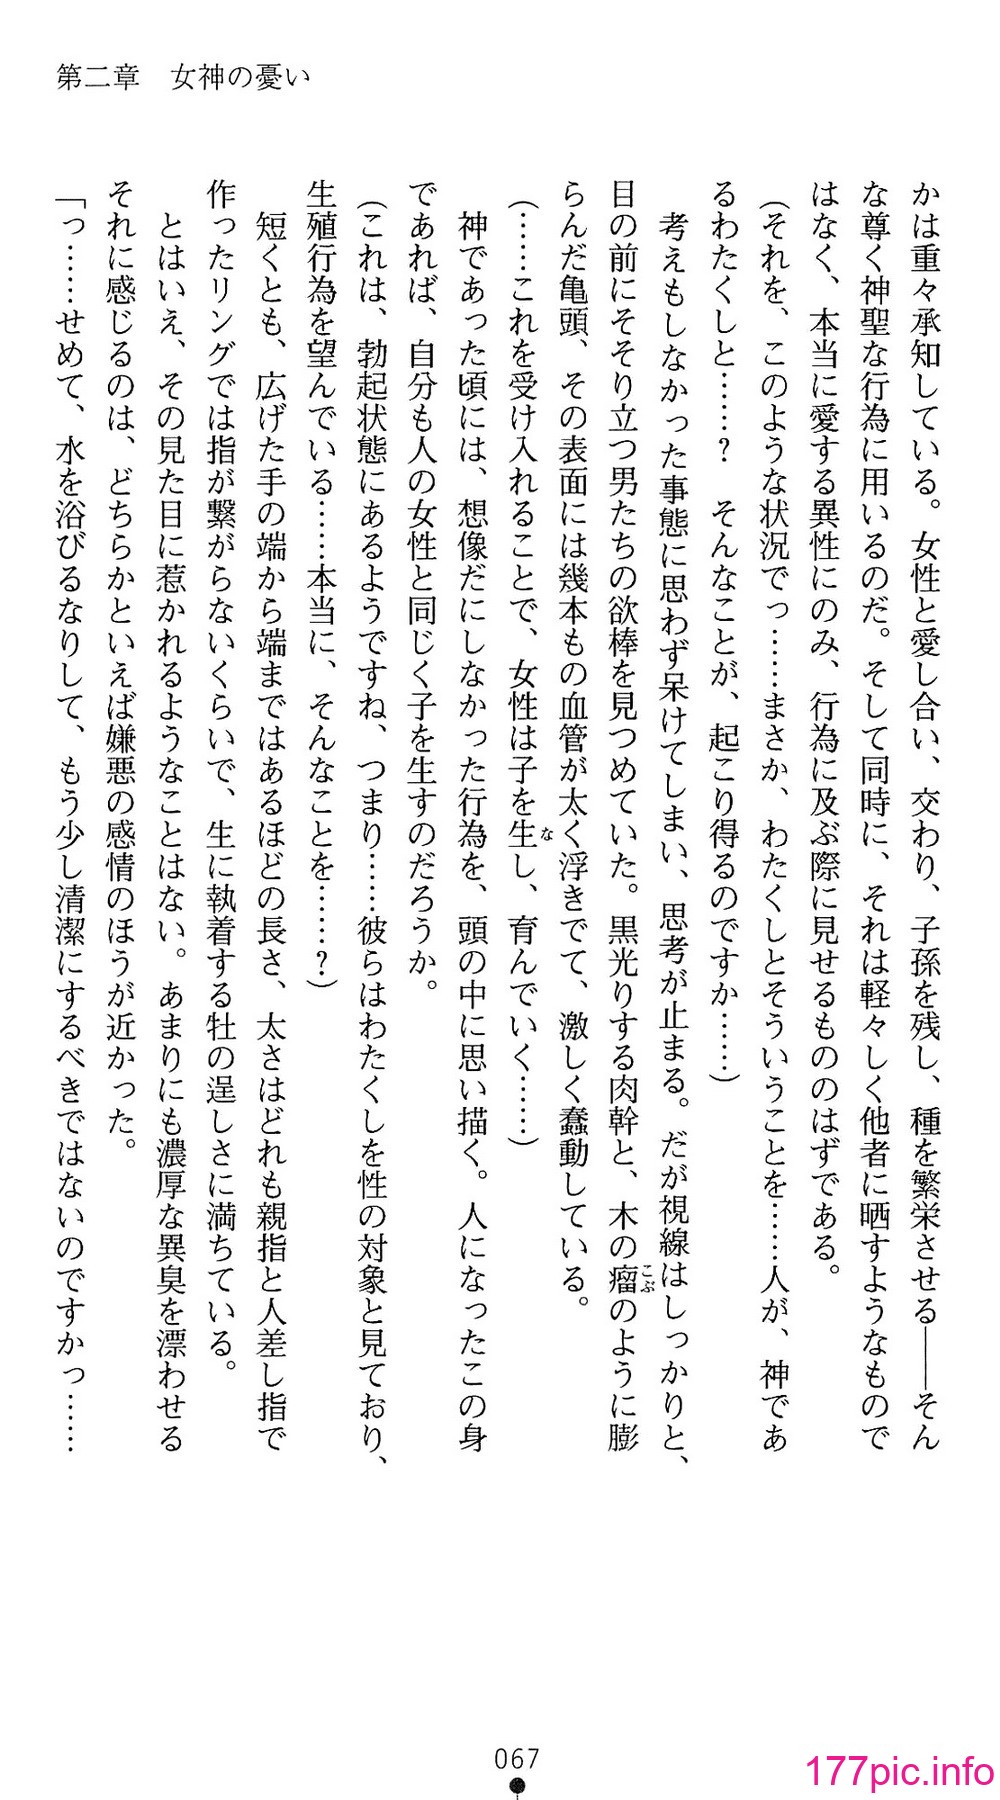 第二章　女神の憂い
かは重々承知している。女性と愛し合い、交わり、子孫を残し、種を繁栄させる――そん
な尊く神聖な行為に用いるのだ。そして同時に、それは軽々しく他者に晒すようなもので
はなく、本当に愛する異性にのみ、行為に及ぶ際に見せるもののはずである。
（それを、このような状況でっ……まさか、わたくしとそういうことを……人が、神であ
るわたくしと……？　そんなことが、起こり得るのですか……）
　考えもしなかった事態に思わず呆けてしまい、思考が止まる。だが視線はしっかりと、
目の前にそそり立つ男たちの欲棒を見つめていた。黒光りする肉幹と、木の瘤こぶのように膨
らんだ亀頭、その表面には幾本もの血管が太く浮きでて、激しく蠢動している。
（……これを受け入れることで、女性は子を生なし、育んでいく……）
　神であった頃には、想像だにしなかった行為を、頭の中に思い描く。人になったこの身
であれば、自分も人の女性と同じく子を生すのだろうか。
（これは、勃起状態にあるようですね、つまり……彼らはわたくしを性の対象と見ており、
生殖行為を望んでいる……本当に、そんなことを……？）
　短くとも、広げた手の端から端まではあるほどの長さ、太さはどれも親指と人差し指で
作ったリングでは指が繋がらないくらいで、生に執着する牡の逞しさに満ちている。
　とはいえ、その見た目に惹かれるようなことはない。あまりにも濃厚な異臭を漂わせる
それに感じるのは、どちらかといえば嫌悪の感情のほうが近かった。
「っ……せめて、水を浴びるなりして、もう少し清潔にするべきではないのですかっ……
067
177pic.info